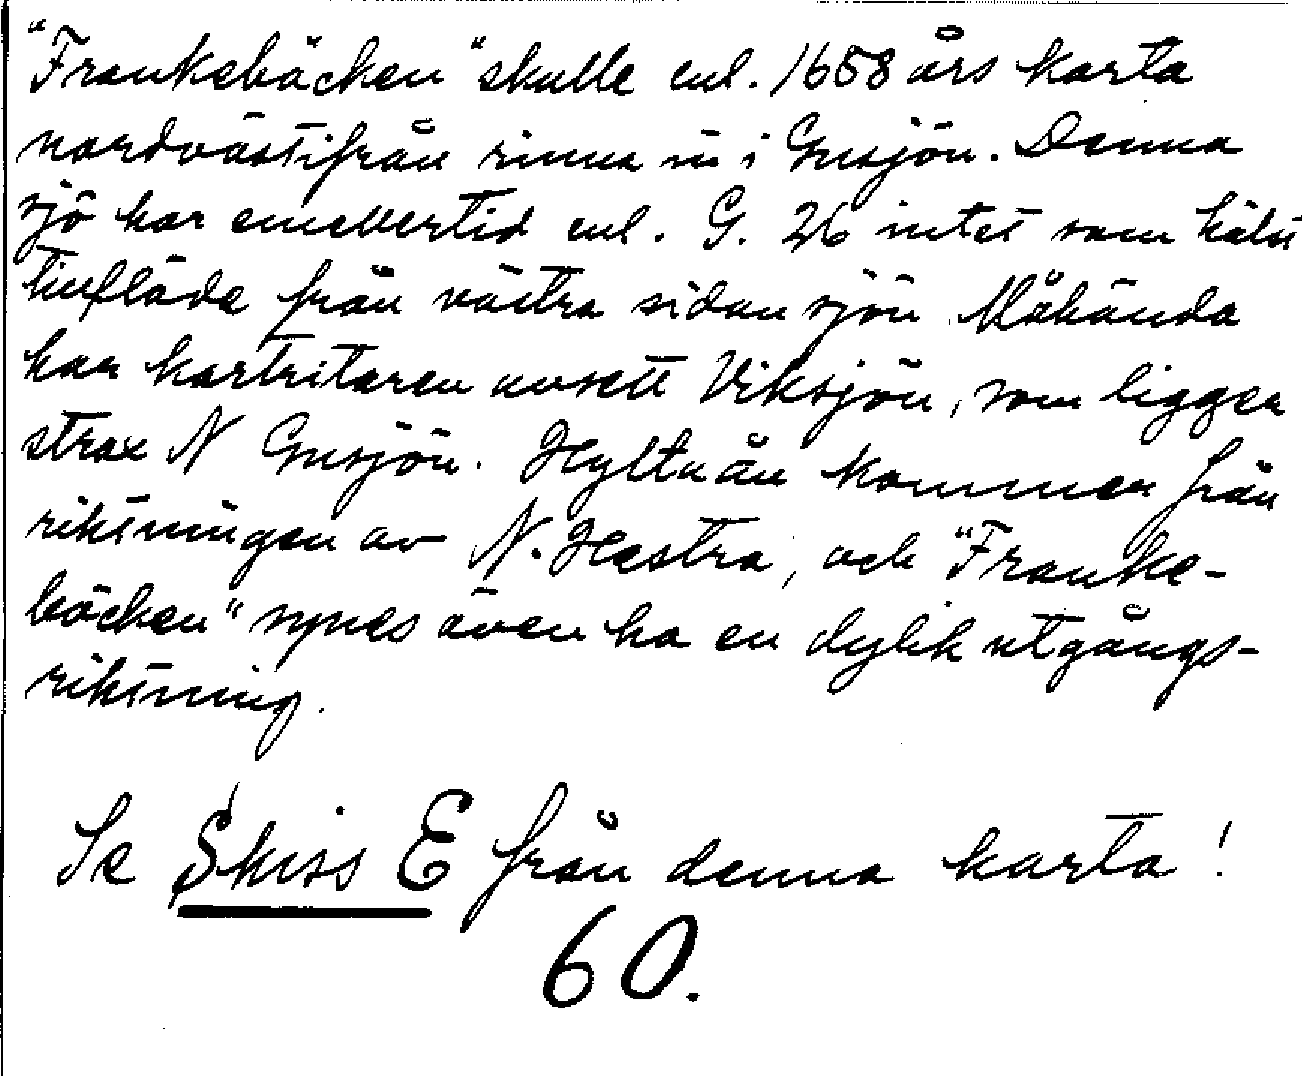 "Frankebäcken" skulle enl. 1658 års karta
nordvästifrån rinna in i Gusjön. Denna
sjö har emellertid enl. G. 26 intet som hälst
tillflöde från västra sidan sjön. Måhända
har kartritaren avsett Viksjön, som ligger
strax N Gusjön. Hyltaån kommer från
riktningen av N. Hestra, och "Franke-
bäcken" synes även ha en dylik utgångs-
riktning.
Se Skiss E från denna karta!
60.